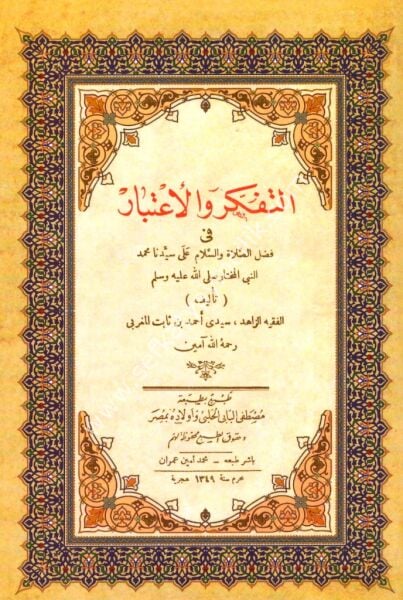 التفكر والاعتبار
فى
فضل الصلاة والسلام على سيدنا محمد
النبى المختار صلى الله عليه وسلم
( تأليف )
الفقيه الزاهد ، سيدى أحمد بن ثابت المغربى
رحمه الله آمين
طبع بمطبعة
مصطفى البابى الحلبى وأولاده بمصر
وحقوق الطبع محفوظة لهم
باشر طبعه - محمد أمين عمران
محرم سنة ١٣٤٩ هجرية